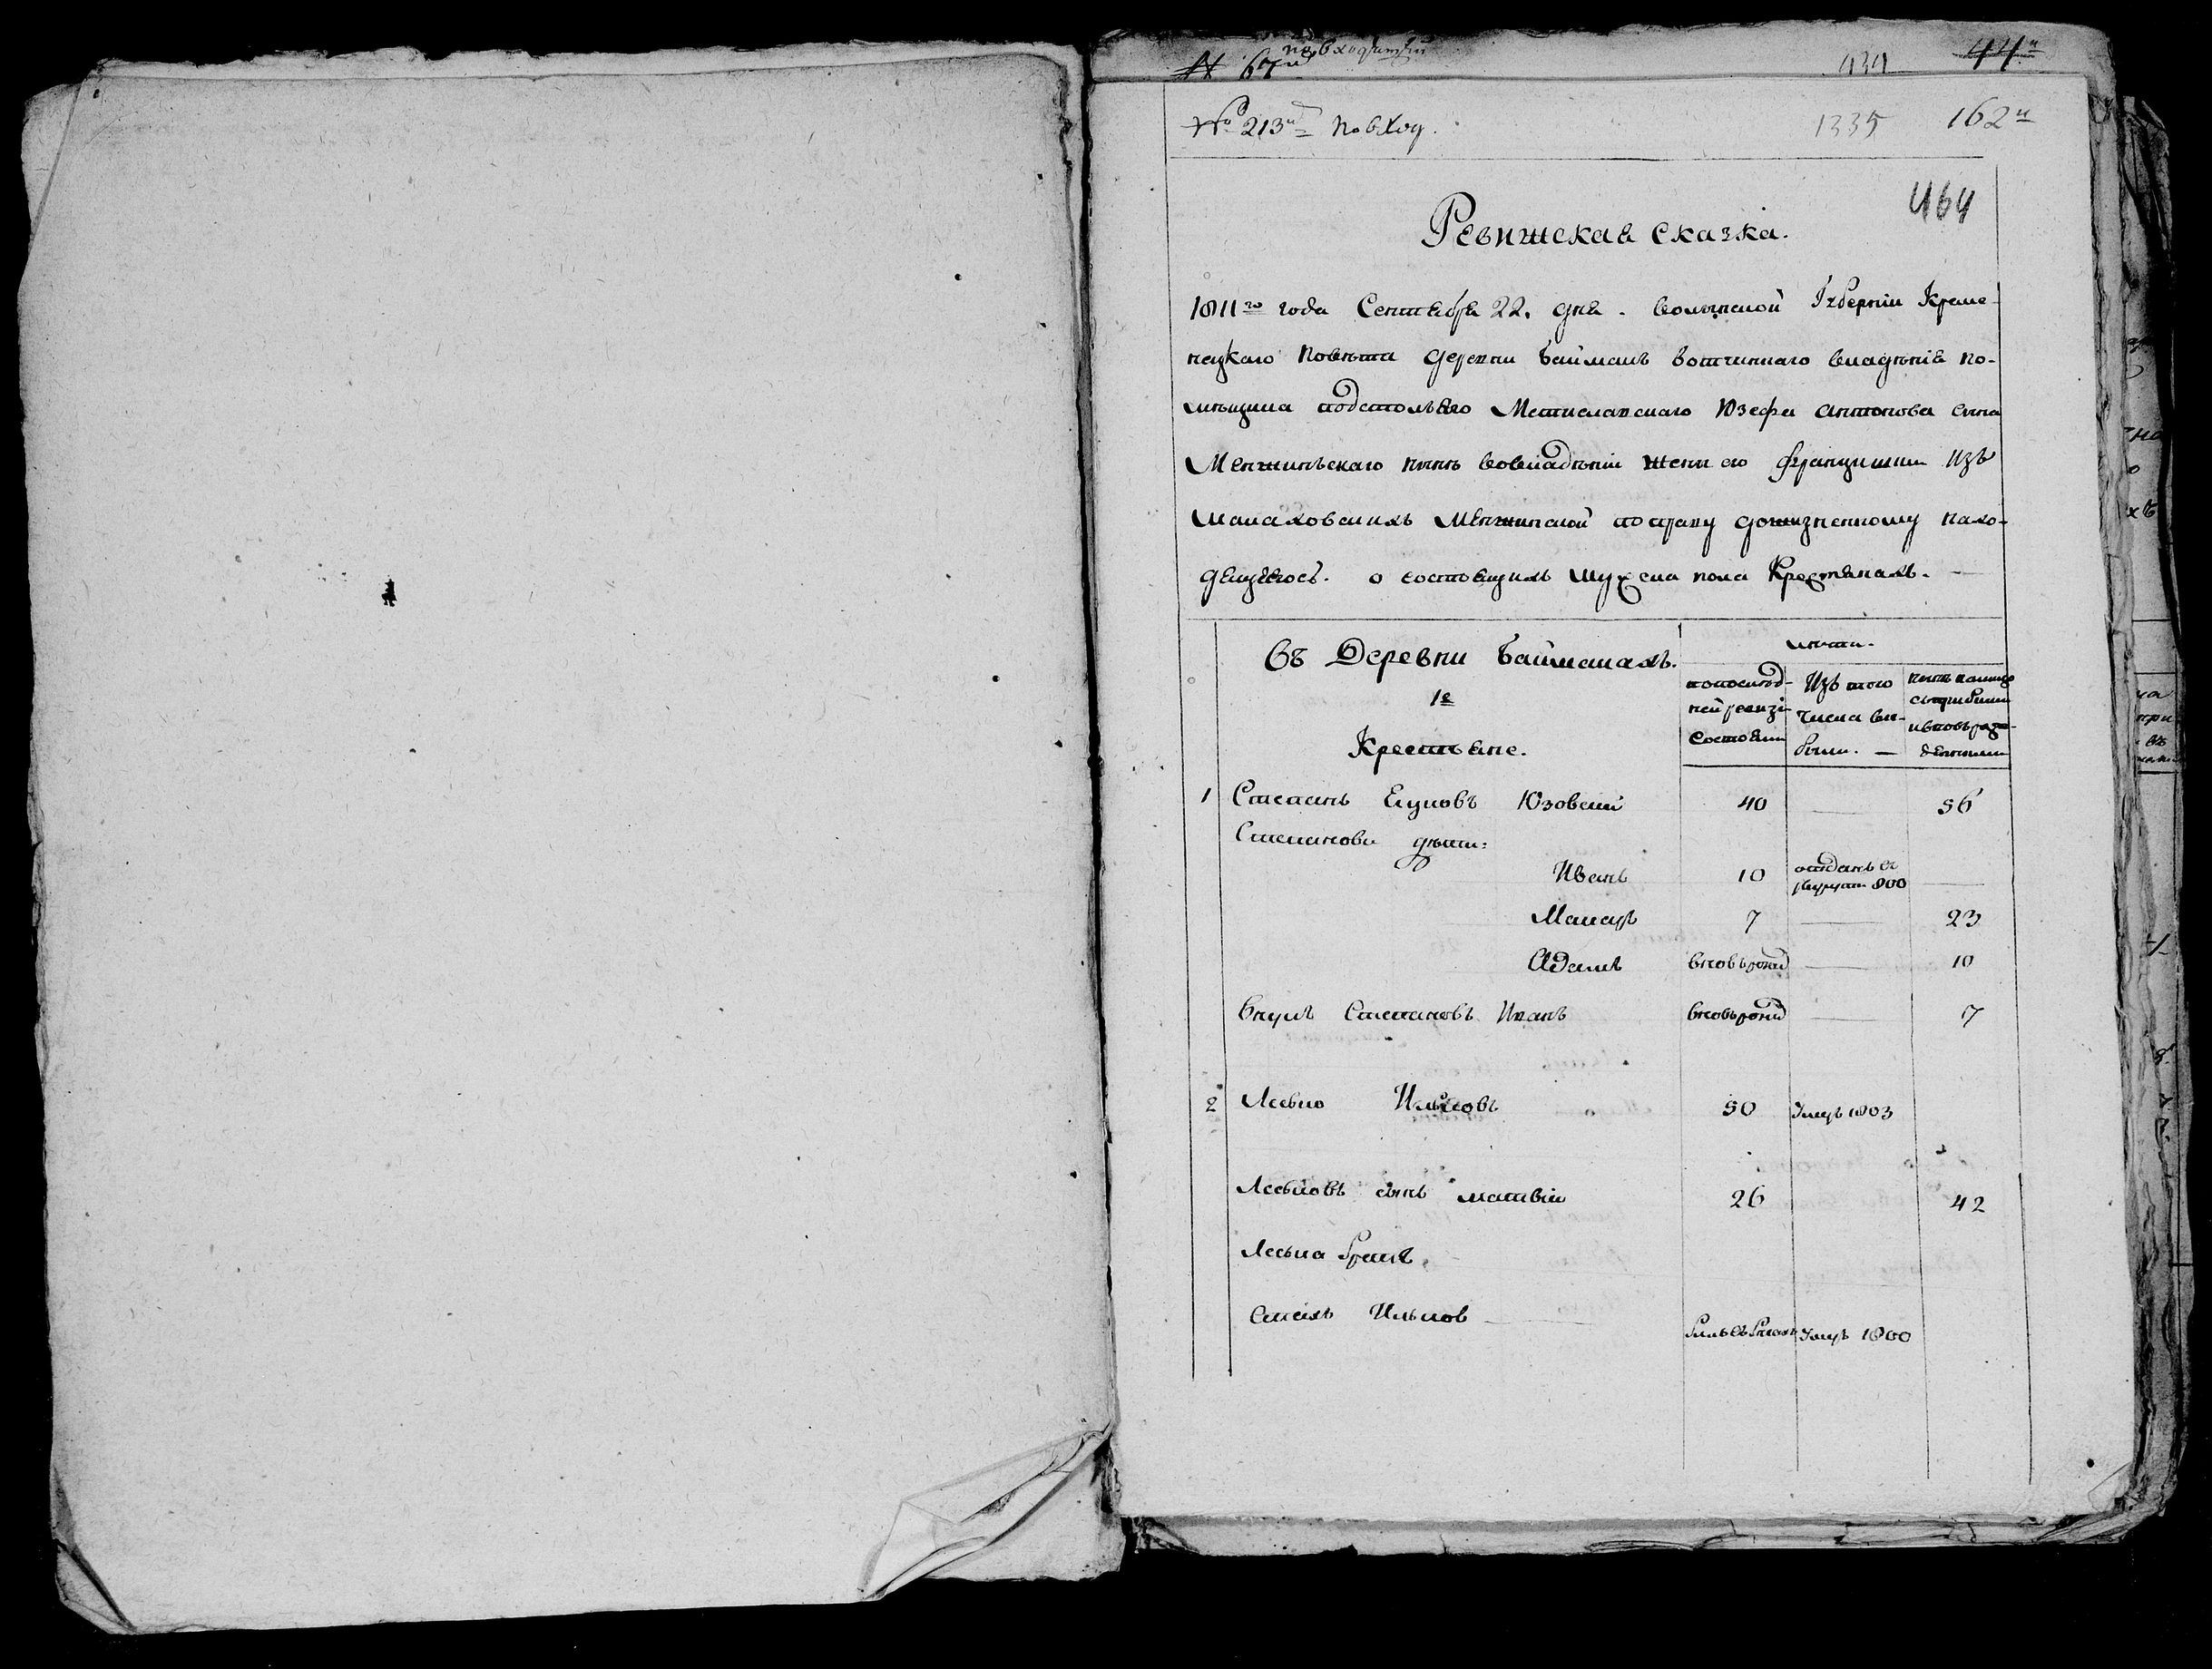 № 67й по входящій 434 44й
№ 213й по вход. 1335 162й
464
Ревижская сказка.
1811го года Сентября 22. дня. волынской Губерніи Креме-
нецкаго Повѣта деревни Баймакъ вотчиннаго владѣнія по-
мѣщика подстольяго Мстиславскаго Юзефа Антонова сына
Менжиньскаго нынѣ вовладѣніи жены его Францишки Изъ
Малаховскихъ Менжинской по праву дожизненному нахо-
дящеюсь. о состоящихъ мужска пола Крестянахъ.
Въ Деревни Баймакахъ. лѣта.
1е
Крестьяне.
попослѣд-
ней ревизі
состояли
Изъ того
числа вы-
были.
нынѣ налице
съ прибыли
ивновь рож-
денными
1 Степанъ Яцковъ Юзовский 40 — 56
Степановы дѣти:
Иванъ 10 отданъ въ рекруты 800 —
Макаръ 7 — 23
Адамъ вновь рожд — 10
внукъ Степановъ Иванъ вновь рожд — 7
2 Леско Ильковъ 50 Умеръ 1803
Леськовъ сынъ матвій 26 42
Леська братъ
Стахъ Ильков Умеръ 1800